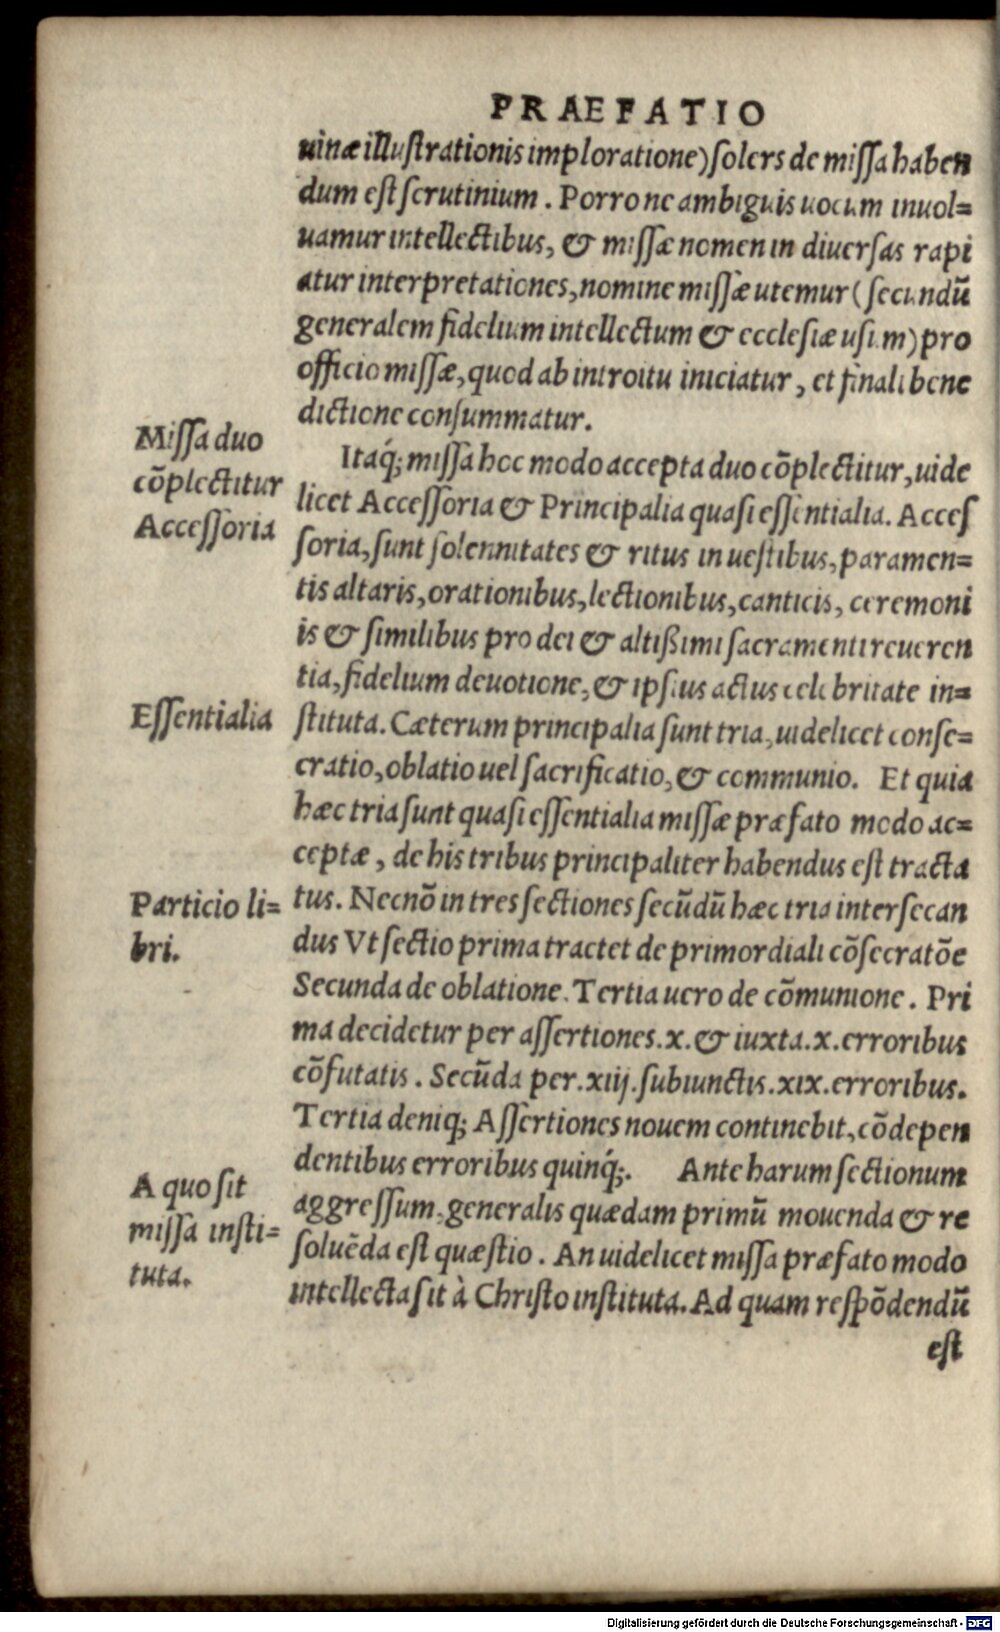 PRAEFATIO
uinæ illuſtrationis imploratione) ſolers de miſſa haben
dum eſt ſcrutinium. Porro ne ambiguis uocum inuol=
uamur intellectibus, & miſſæ nomen in diuerſas rapi
atur interpretationes, nomine miſſæ utemur (ſecundū
generalem fidelium intellectum & eccleſiæ uſum) pro
officio miſſæ, quod ab introitu iniciatur, et finali bene
dictione conſummatur.
Miſſa duo
cōplectitur
Acceſſoria
Itaq́; miſſa hoc modo accepta duo cōplectitur, uide
licet Acceſſoria & Principalia quaſi eſſentialia. Acceſ
ſoria, ſunt ſolennitates & ritus in ueſtibus, paramen=
tis altaris, orationibus, lectionibus, canticis, ceremoni
is & ſimilibus pro dei & altißimi ſacramenti reueren
tia, fidelium deuotione, & ipſius actus celebritate in=
Eſſentialia
ſtituta. Cæterum principalia ſunt tria, uidelicet conſe=
cratio, oblatio uel ſacrificatio, & communio. Et quia
hæc tria ſunt quaſi eſſentialia miſſæ præfato modo ac=
ceptæ, de his tribus principaliter habendus eſt tracta
Particio li=
bri.
tus. Necnō in tres ſectiones ſecūdū hæc tria interſecan
dus Vt ſectio prima tractet de primordiali cōſecratōe
Secunda de oblatione. Tertia uero de cōmunione. Pri
ma decidetur per aſſertiones.x. & iuxta.x.erroribus
cōfutatis. Secūda per.xiij.ſubiunctis.xix.erroribus.
Tertia deniq; Aſſertiones nouem continebit, cōdepen
dentibus erroribus quinq́;. Ante harum ſectionum
A quo ſit
miſſa inſti=
tuta.
aggreſſum, generalis quædam primū mouenda & re
ſoluēda eſt quæſtio. An uidelicet miſſa præfato modo
intellecta ſit à Chriſto inſtituta. Ad quam reſpōdendū
eſt
Digitalisierung gefördert durch die Deutsche Forschungsgemeinschaft - DFG